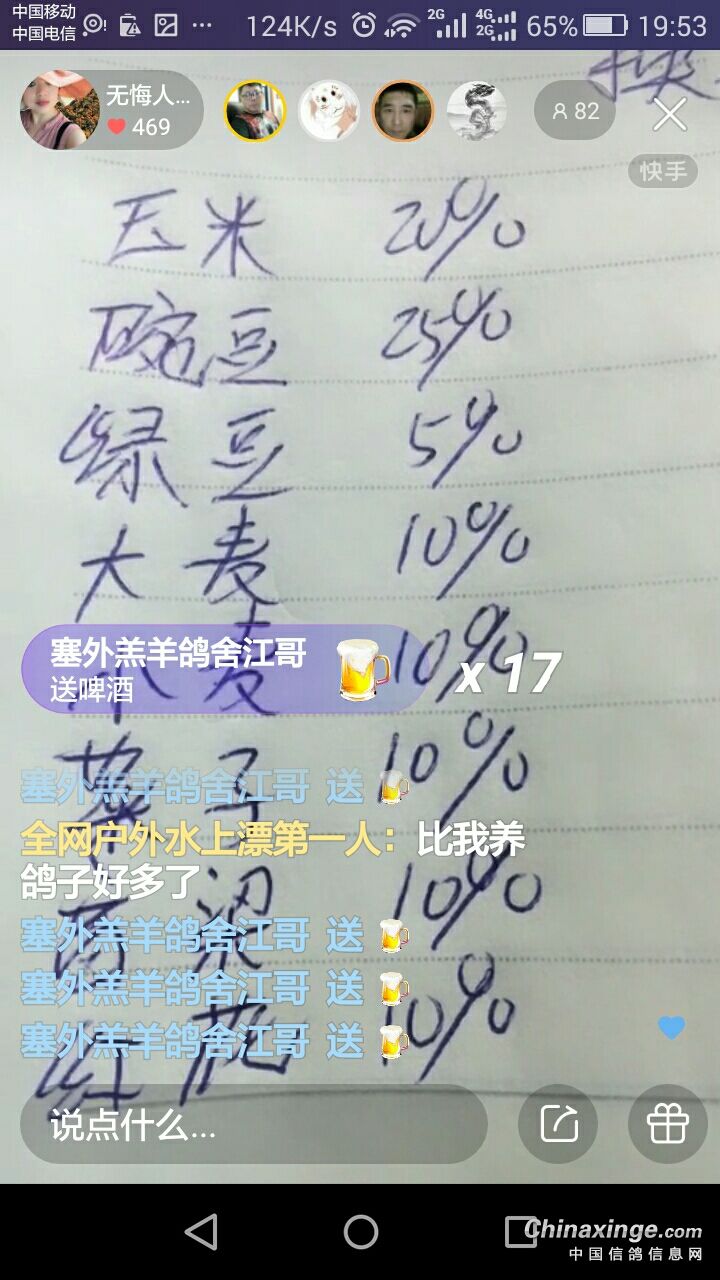 中国移动
中国电信
124K/s 2G 4G 2G 65% 19:53
无悔人...
469
82
换
快手
玉米 20%
豌豆 25%
绿豆 5%
大麦 10%
塞外羔羊鸽舍江哥
送啤酒
x 17
小麦 10%
菜子 10%
塞外羔羊鸽舍江哥 送
全网户外水上漂第一人：比我养
鸽子好多了
高梁 10%
塞外羔羊鸽舍江哥 送
塞外羔羊鸽舍江哥 送
塞外羔羊鸽舍江哥 送
红花 10%
说点什么...
Chinaxinge.com
中国信鸽信息网